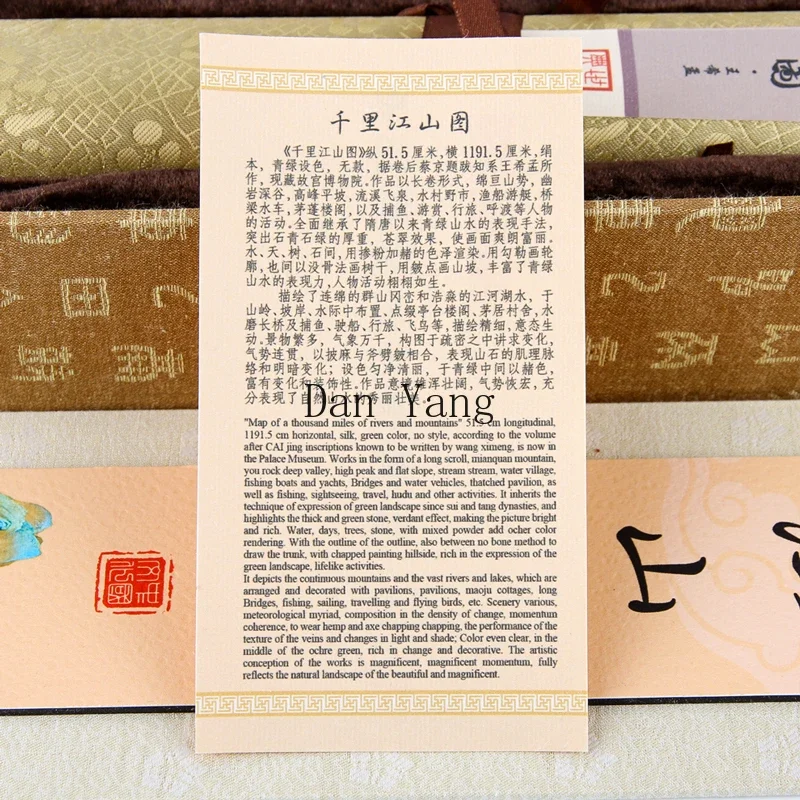 千里江山图
《千里江山图》纵51.5厘米,横1191.5厘米,绢
本,青绿设色,无款,据卷后蔡京题跋知系王希孟所
作,现藏故宫博物院。作品以长卷形式,绵亘山势,幽
岩深谷,高峰平坡,流溪飞泉,水村野市,渔船游艇,桥
梁水车,茅蓬楼阁,以及捕鱼、游赏、行旅、呼渡等人物
的活动。全面继承了隋唐以来青绿山水的表现手法,
突出石青石绿的厚重、苍翠效果,使画面爽朗富丽。
水、天、树、石间,用掺粉加赭的色泽渲染。用勾勒画轮
廓,也间以没骨法画树干,用皴点画山坡,丰富了青绿
山水的表现力,人物活动栩栩如生。
描绘了连绵的群山冈峦和浩淼的江河湖水,于
山岭、坡岸、水际中布置、点缀亭台楼阁、茅居村舍,水
磨长桥及捕鱼、驶船、行旅、飞鸟等,描绘精细,意态生
动。景物繁多,气象万千,构图于疏密之中讲求变化,
气势连贯,以披麻与斧劈皴相合,表现山石的肌理脉
络和明暗变化;设色匀净清丽,于青绿中间以赭色,
富有变化和装饰性。作品意境雄浑壮阔,气势恢宏,充
分表现了自然山水的秀丽壮美。
Dan Yang
"Map of a thousand miles of rivers and mountains" 51.5 cm longitudinal,
1191.5 cm horizontal, silk, green color, no style, according to the volume
after CAI jing inscriptions known to be written by wang ximeng, is now in
the Palace Museum. Works in the form of a long scroll, mianquan mountain,
you rock deep valley, high peak and flat slope, stream stream, water village,
fishing boats and yachts, Bridges and water vehicles, thatched pavilion, as
well as fishing, sightseeing, travel, hudu and other activities. It inherits the
technique of expression of green landscape since sui and tang dynasties, and
highlights the thick and green stone, verdant effect, making the picture bright
and rich. Water, days, trees, stone, with mixed powder add ocher color
rendering. With the outline of the outline, also between no bone method to
draw the trunk, with chapped painting hillside, rich in the expression of the
green landscape, lifelike activities.
It depicts the continuous mountains and the vast rivers and lakes, which are
arranged and decorated with pavilions, pavilions, maoju cottages, long
Bridges, fishing, sailing, travelling and flying birds, etc. Scenery various,
meteorological myriad, composition in the density of change, momentum
coherence, to wear hemp and axe chapping chapping, the performance of the
texture of the veins and changes in light and shade; Color even clear, in the
middle of the ochre green, rich in change and decorative. The artistic
conception of the works is magnificent, magnificent momentum, fully
reflects the natural landscape of the beautiful and magnificent.
山